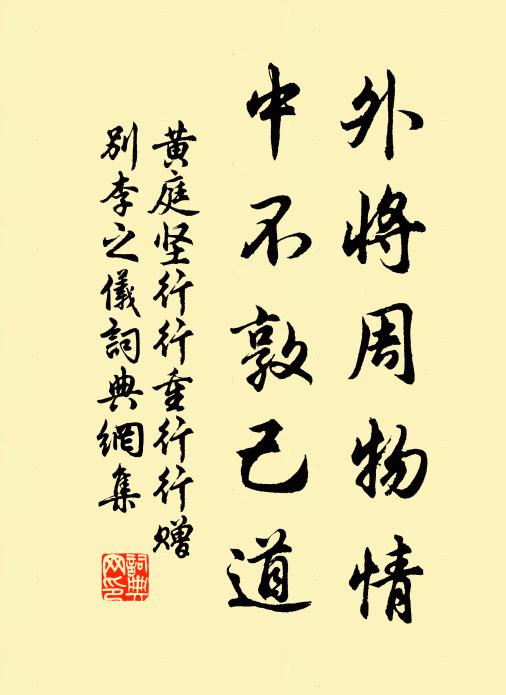 外将周物情
中不敦己道
黄庭坚行行重行行赠
别李之儀詞典網集
詞典
网印